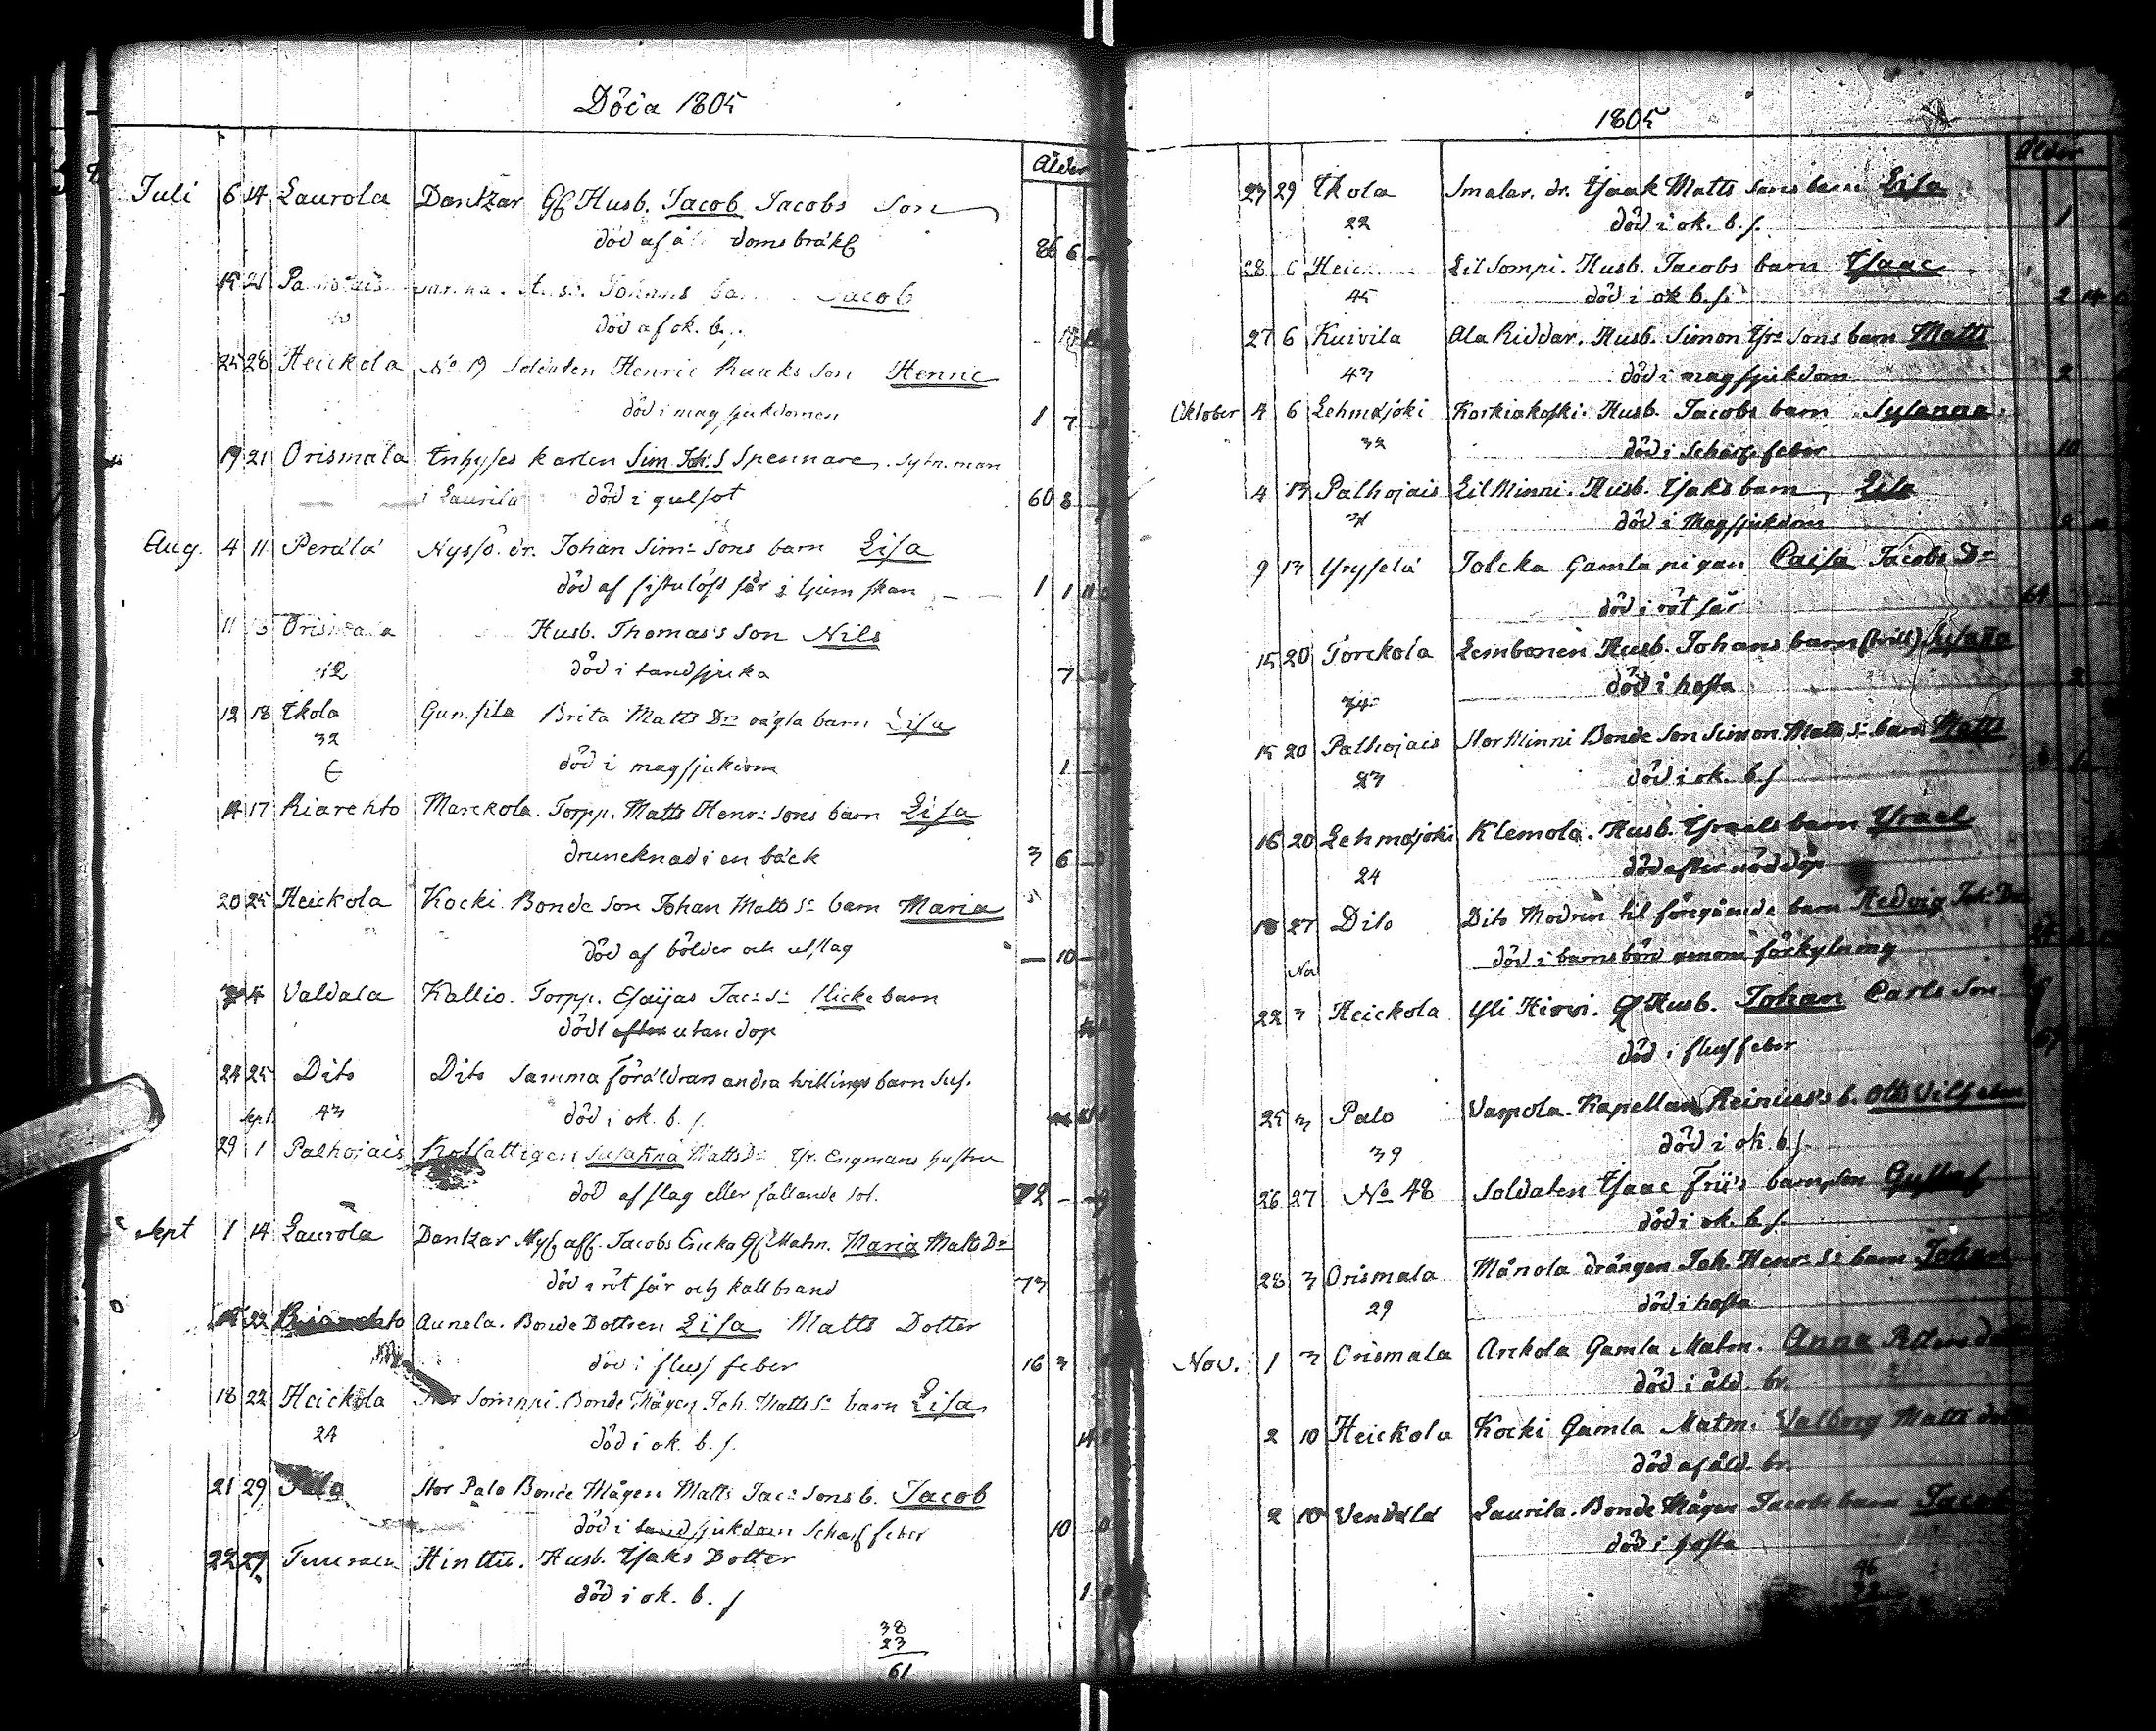 Döda 1805
Ålder
Juli 6 14 Laurola Dantzar Gf Husb. Jacob Jacobs Son
död af å doms bråk 86 6
15 21 Johans Jacob
död af ok. b.
25 28 Heickola No 19 Soldaten Henric Raaks Son Henric
död i magsjukdomen 1 7
19 21 Orismala Inhyses karlen Sim Joh. S Spennare
i Laurila död i gulsot 60 8
Aug. 4 11 Perälä Nyssö. dr. Johan Sim: Sons barn Lisa
död af fistulöst sår i ljumskan 1 1 11
11 Orismala Husb. Thomas's Son Nils
42 död i tandsjuka 7
12 18 Ikola Gunsila Brita Matts Dr oägta barn Lisa
32 död i magsjukdom 1
14 17 Kiarehto Marckola. Torpp. Matts Henr: sons barn Lisa
druncknad i en bäck 3 6
20 25 Heickola Kocki Bonde Son Johan Matts S: barn Maria
död af bölder och utslag 10
4 Valdala Kallio. Torpp. Esaijas Jac: S: flicke barn
död efter utan dop
24 25 Dito Dito Samma föräldrars andra tvillings barn Sus.
Sept. 43 död i ok. b. s.
29 1 Palhojais Susanna Matts Dr Engmans hustru
död af slag eller fallande sot. 72
Sept 1 14 Laurola Dantzar Jacobs Encka Gf Matm. Maria Matts Dr
död i röt sår och kallbrand 73
22 Kiarehto Aunela. Bonde Dottren Lisa Matts Dotter
död i fluss feber 16 3
18 22 Heickola Stor Somppi. Bonde Mågen Joh. Matts S: barn Lisa
24 död i ok. b. s. 14
21 29 Palo Stor Palo Bonde Mågen Matts Jac: Sons b. Jacob
död i tandsjukdom Scharf feber 10
22 27 Hinttu. Husb. Isaks Dotter
död i ok. b. s 1
38
23
61
1805
Ålder
23 29 Ikola Smalar. dr. Isaak Matts Sons barn Lisa
22 död i ok. b. s. 1
28 6 Heick Lil Sompi. Husb. Jacobs barn Isaac
45 död i ok b. s. 2 14
27 6 Kuivila Ala Riddar. Husb. Simon Sons barn Matts
43 död i magsjukdom 2
Oktober 4 6 Lehmäjoki Korkiakoski. Husb. Jacobs barn Susanna
32 död i Scharf feber 10
4 13 Palhojais Lil Minni. Husb. Isaks barn Lisa
31 död i Magsjukdom 2
9 13 Yryselä Jolcka Gamla pigan Caisa Jacobs Dr
död i röt sår 61
15 20 Torckola Lembonen Husb. Johans barn (tvill) Susanna
34 död i hosta 2
15 20 Palhojais Stor Minni Bonde Son Simon Matts S: barn Matts
23 död i ok. b. s
16 20 Lehmäjoki Klemola. Husb. Israels barn Israel
24 död efter nöddop
18 27 Dito Dito Modren til föregående barn Hedvig Joh. Dr
Nov död i barnsbörd genom förkylning
22 3 Heickola Yli Hirvi. Gf Husb. Johan Carls Son
död i fluss feber
25 3 Palo Vaspola. Kapellan Reinius's b. Otto Vilhelm
39 död i ok. b. s.
26 27 No 48 Soldaten Isaac Friis barn, Son Gustaf
död i ok. b. s.
28 3 Orismala Månola drängen Joh. Henr: S: barn Johan
29 död i hosta
Nov. 1 3 Orismala Arckola Gamla Matm. Anna Petters
död i åld. br.
2 10 Heickola Kocki Gamla Matm. Valborg Matts
död af åld. br.
2 10 Vendälä Laurila. Bonde Mågen Jacobs barn Jacob
död i hosta
46